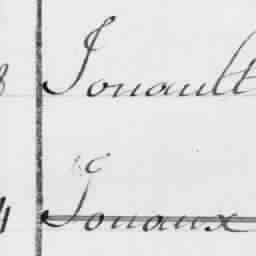 8 Jouault
4 Jouaux